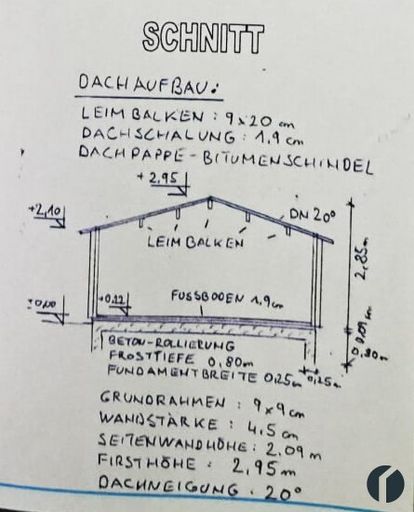 SCHNITT
DACHAUFBAU:
LEIMBALKEN : 9x20 cm
DACHSCHALUNG : 1,9 cm
DACHPAPPE - BITUMENSCHINDEL
+2,95
+2,10
DN 20°
LEIMBALKEN
2,85m
±0,00
+0,12
FUSSBODEN 1,9cm
0,09m
0,80m
BETON-ROLLIERUNG
FROSTTIEFE 0,80m
FUNDAMENTBREITE 0,25m
0,25m
GRUNDRAHMEN : 9x9cm
WANDSTÄRKE : 4,5 cm
SEITENWANDHÖHE : 2,09 m
FIRSTHÖHE : 2,95m
DACHNEIGUNG : 20°